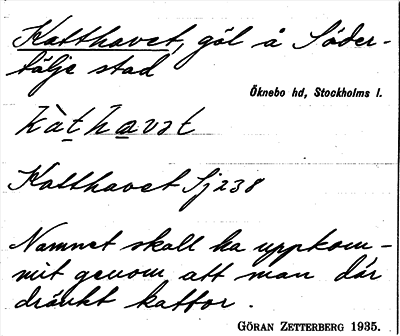 Katthavet, göl å Söder-
tälje stad
Öknebo hd, Stockholms l.
kàt̯havət
Katthavet Sj 238
Namnet skall ha uppkom-
mit genom att man där
dränkt kattor.
GÖRAN ZETTERBERG 1935.